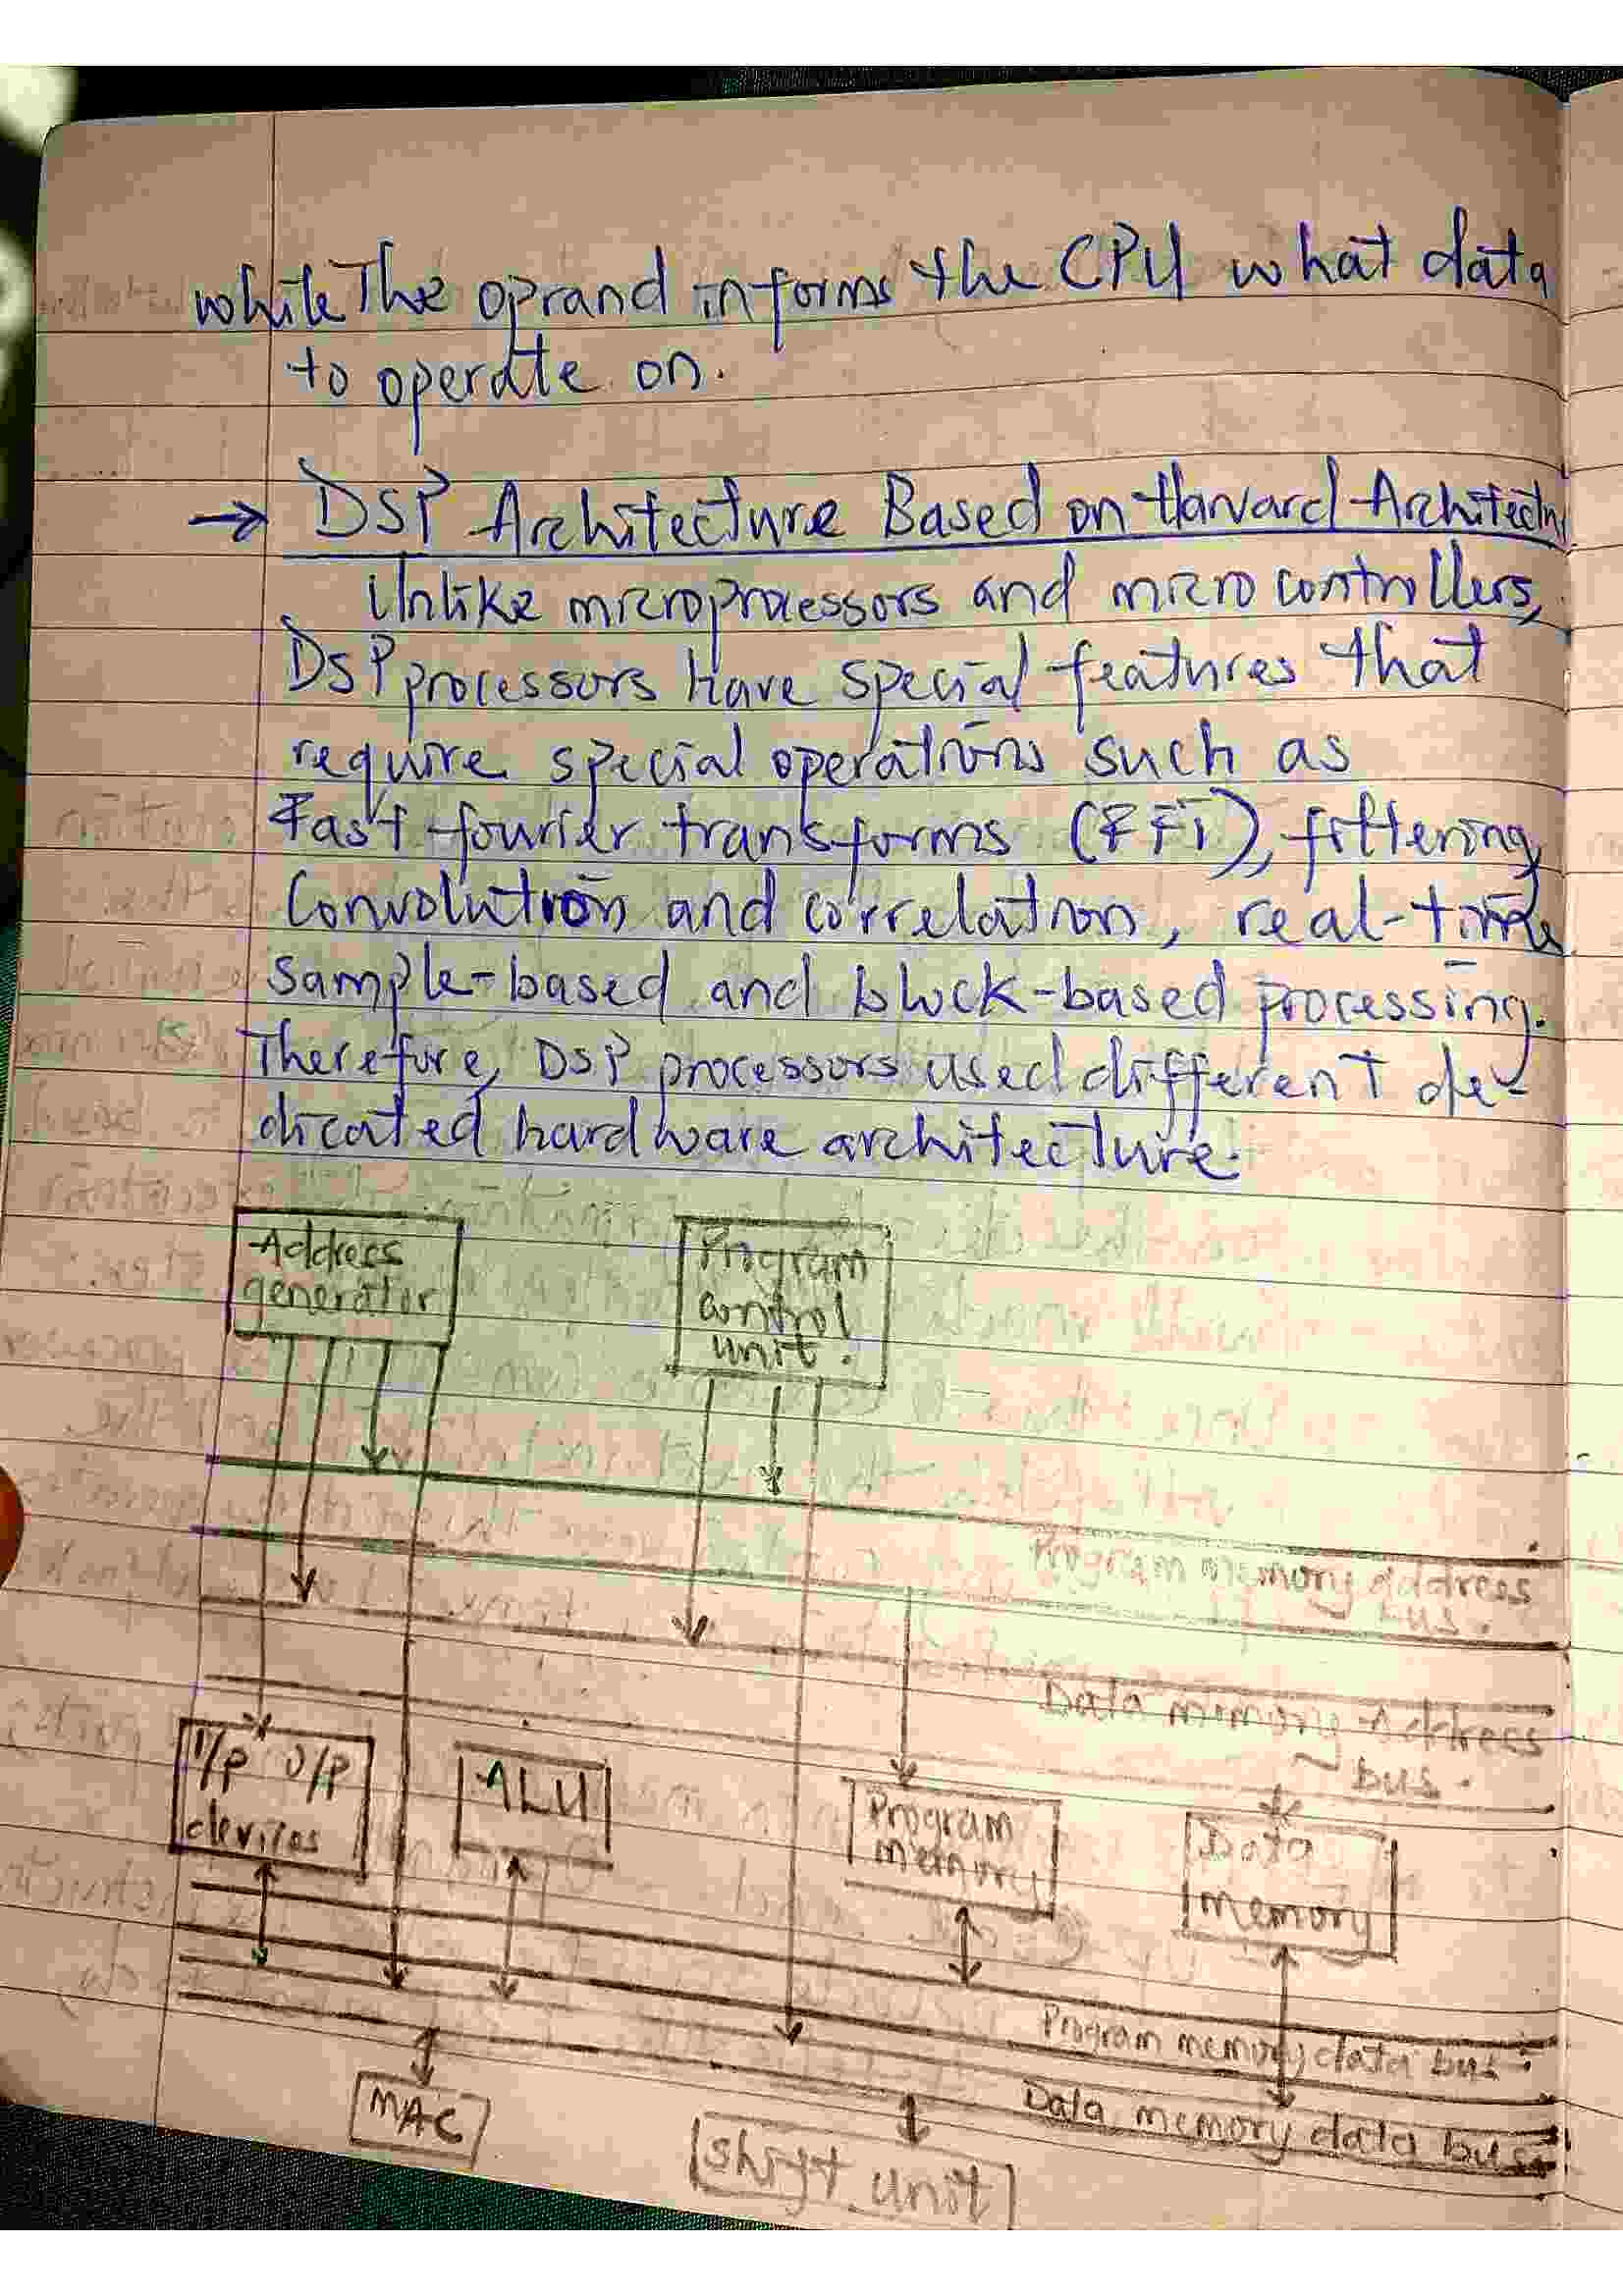 while The oprand informs the CPU what data
to operate on.
→ DSP Architecture Based on Harvard Architectu
Unlike microprocessors and micro controllers,
DSP processors have special features that
require special operations such as
Fast fourier transforms (FFT), filtering,
Convolution and correlation, real-time
sample-based and block-based processing.
Therefore, DSP processors used different de-
dicated hardware architecture.
Address
generator
Program
control
unit.
Program memory address
bus.
Data memory Address
bus.
I/P O/P
devices
ALU
Program
memory
Data
memory
Program memory data bus.
Data memory data bus
MAC
shift unit